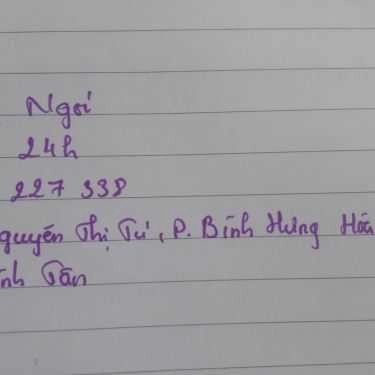 Ngói
24h
227 338
guyễn Thị Tú, P. Bình Hưng Hòa
ình Tân